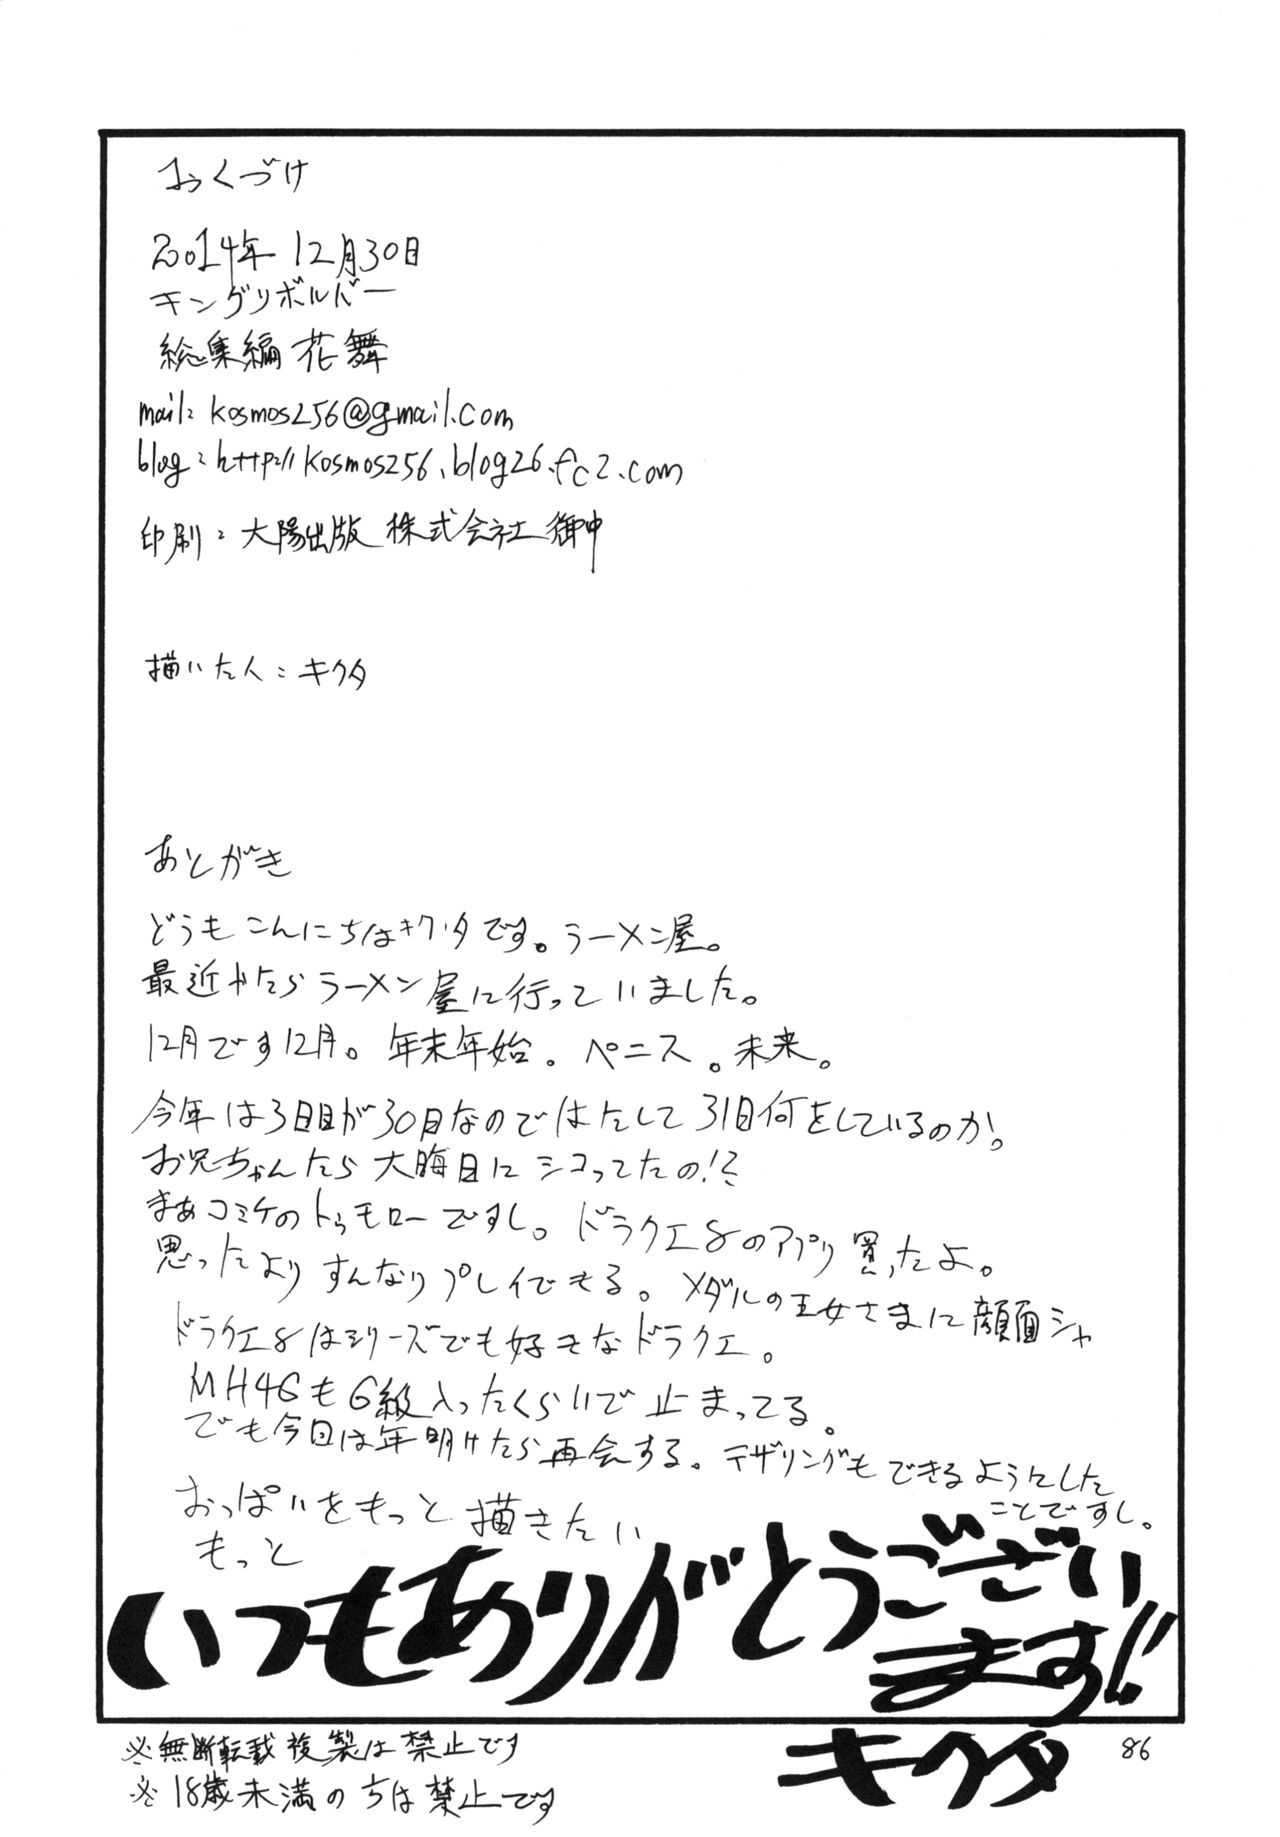 おくづけ
2014年12月30日
キングリボルバー
総集編 花舞
mail: kosmos256@gmail.com
blog: http://kosmos256.blog26.fc2.com
印刷: 大陽出版 株式会社 御中
描いた人: キクタ
あとがき
どうもこんにちはキクタです。ラーメン屋。
最近やたらラーメン屋に行っていました。
12月です12月。年末年始。ペニス。未来。
今年は3日目が30日なのではたして31日何をしているのか。
お兄ちゃんたら大晦日にシコってたの!?
まあコミケのトゥモローですし。ドラクエ8のアプリ買ったよ。
思ったよりすんなりプレイできる。メダルの王女さまに顔面シャ
ドラクエ8はシリーズでも好きなドラクエ。
MH4GもG級入ったくらいで止まってる。
でも今回は年明けたら再会する。テザリングもできるようにした
ことですし。
おっぱいをもっと描きたい
もっと
いつもありがとうござい
ます!!
キクタ
※無断転載複製は禁止です
※18歳未満のちは禁止です
86